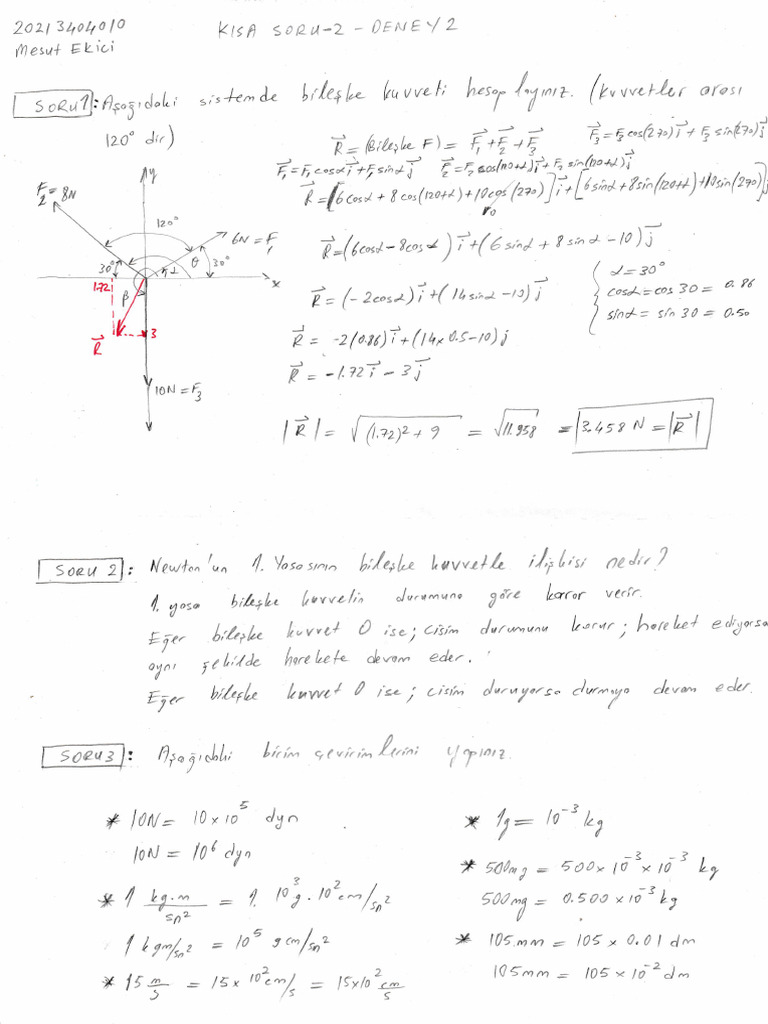 20213404010
Mesut Ekici
KISA SORU-2 - DENEY 2
SORU 1: Aşağıdaki sistemde bileşke kuvveti hesaplayınız. (kuvvetler arası
120° dir)
R⃗ = (Bileşke F) = F⃗₁ + F⃗₂ + F⃗₃
F⃗₃ = F₃cos(270)i⃗ + F₃ sin(270)j⃗
F⃗₁ = F₁cosαi⃗ + F₁sinαj⃗
F⃗₂ = F₂cos(120+α)i⃗ + F₂ sin(120+α)j⃗
R⃗ = [6cosα + 8cos(120+α) + 10cos(270)]i⃗ + [6sinα + 8sin(120+α) + 10sin(270)]j⃗
R⃗ = (6cosα - 8cosα)i⃗ + (6sinα + 8sinα - 10)j⃗
R⃗ = (-2cosα)i⃗ + (14sinα - 10)j⃗
α = 30°
cosα = cos 30 = 0.86
sinα = sin 30 = 0.50
R⃗ = -2(0.86)i⃗ + (14x0.5-10)j
R⃗ = -1.72i⃗ - 3j⃗
|R⃗| = √(1.72)² + 9 = √11.958 = |3.458 N = |R⃗|
y
F₂ = 8N
120°
6N = F₁
30°
α
θ
30°
x
1.72
β
3
R⃗
10N = F₃
SORU 2: Newton'un 1. Yasasının bileşke kuvvetle ilişkisi nedir?
1. yasa bileşke kuvvetin durumuna göre karar verir.
Eğer bileşke kuvvet 0 ise; cisim durumunu korur; hareket ediyorsa
aynı şekilde harekete devam eder.
Eğer bileşke kuvvet 0 ise; cisim duruyorsa durmaya devam eder.
SORU 3: Aşağıdaki birim çevirimlerini yapınız.
* 10N = 10x10⁵ dyn
10N = 10⁶ dyn
* 1 kg.m/sn² = 1. 10³g. 10²cm/sn²
1 kgm/sn² = 10⁵ gcm/sn²
* 15 m/s = 15x 10²cm/s = 15x10² cm/s
* 1g = 10⁻³ kg
* 500mg = 500x10⁻³x10⁻³ kg
500mg = 0.500x10⁻³kg
* 105mm = 105 x 0.01 dm
105mm = 105 x 10⁻² dm